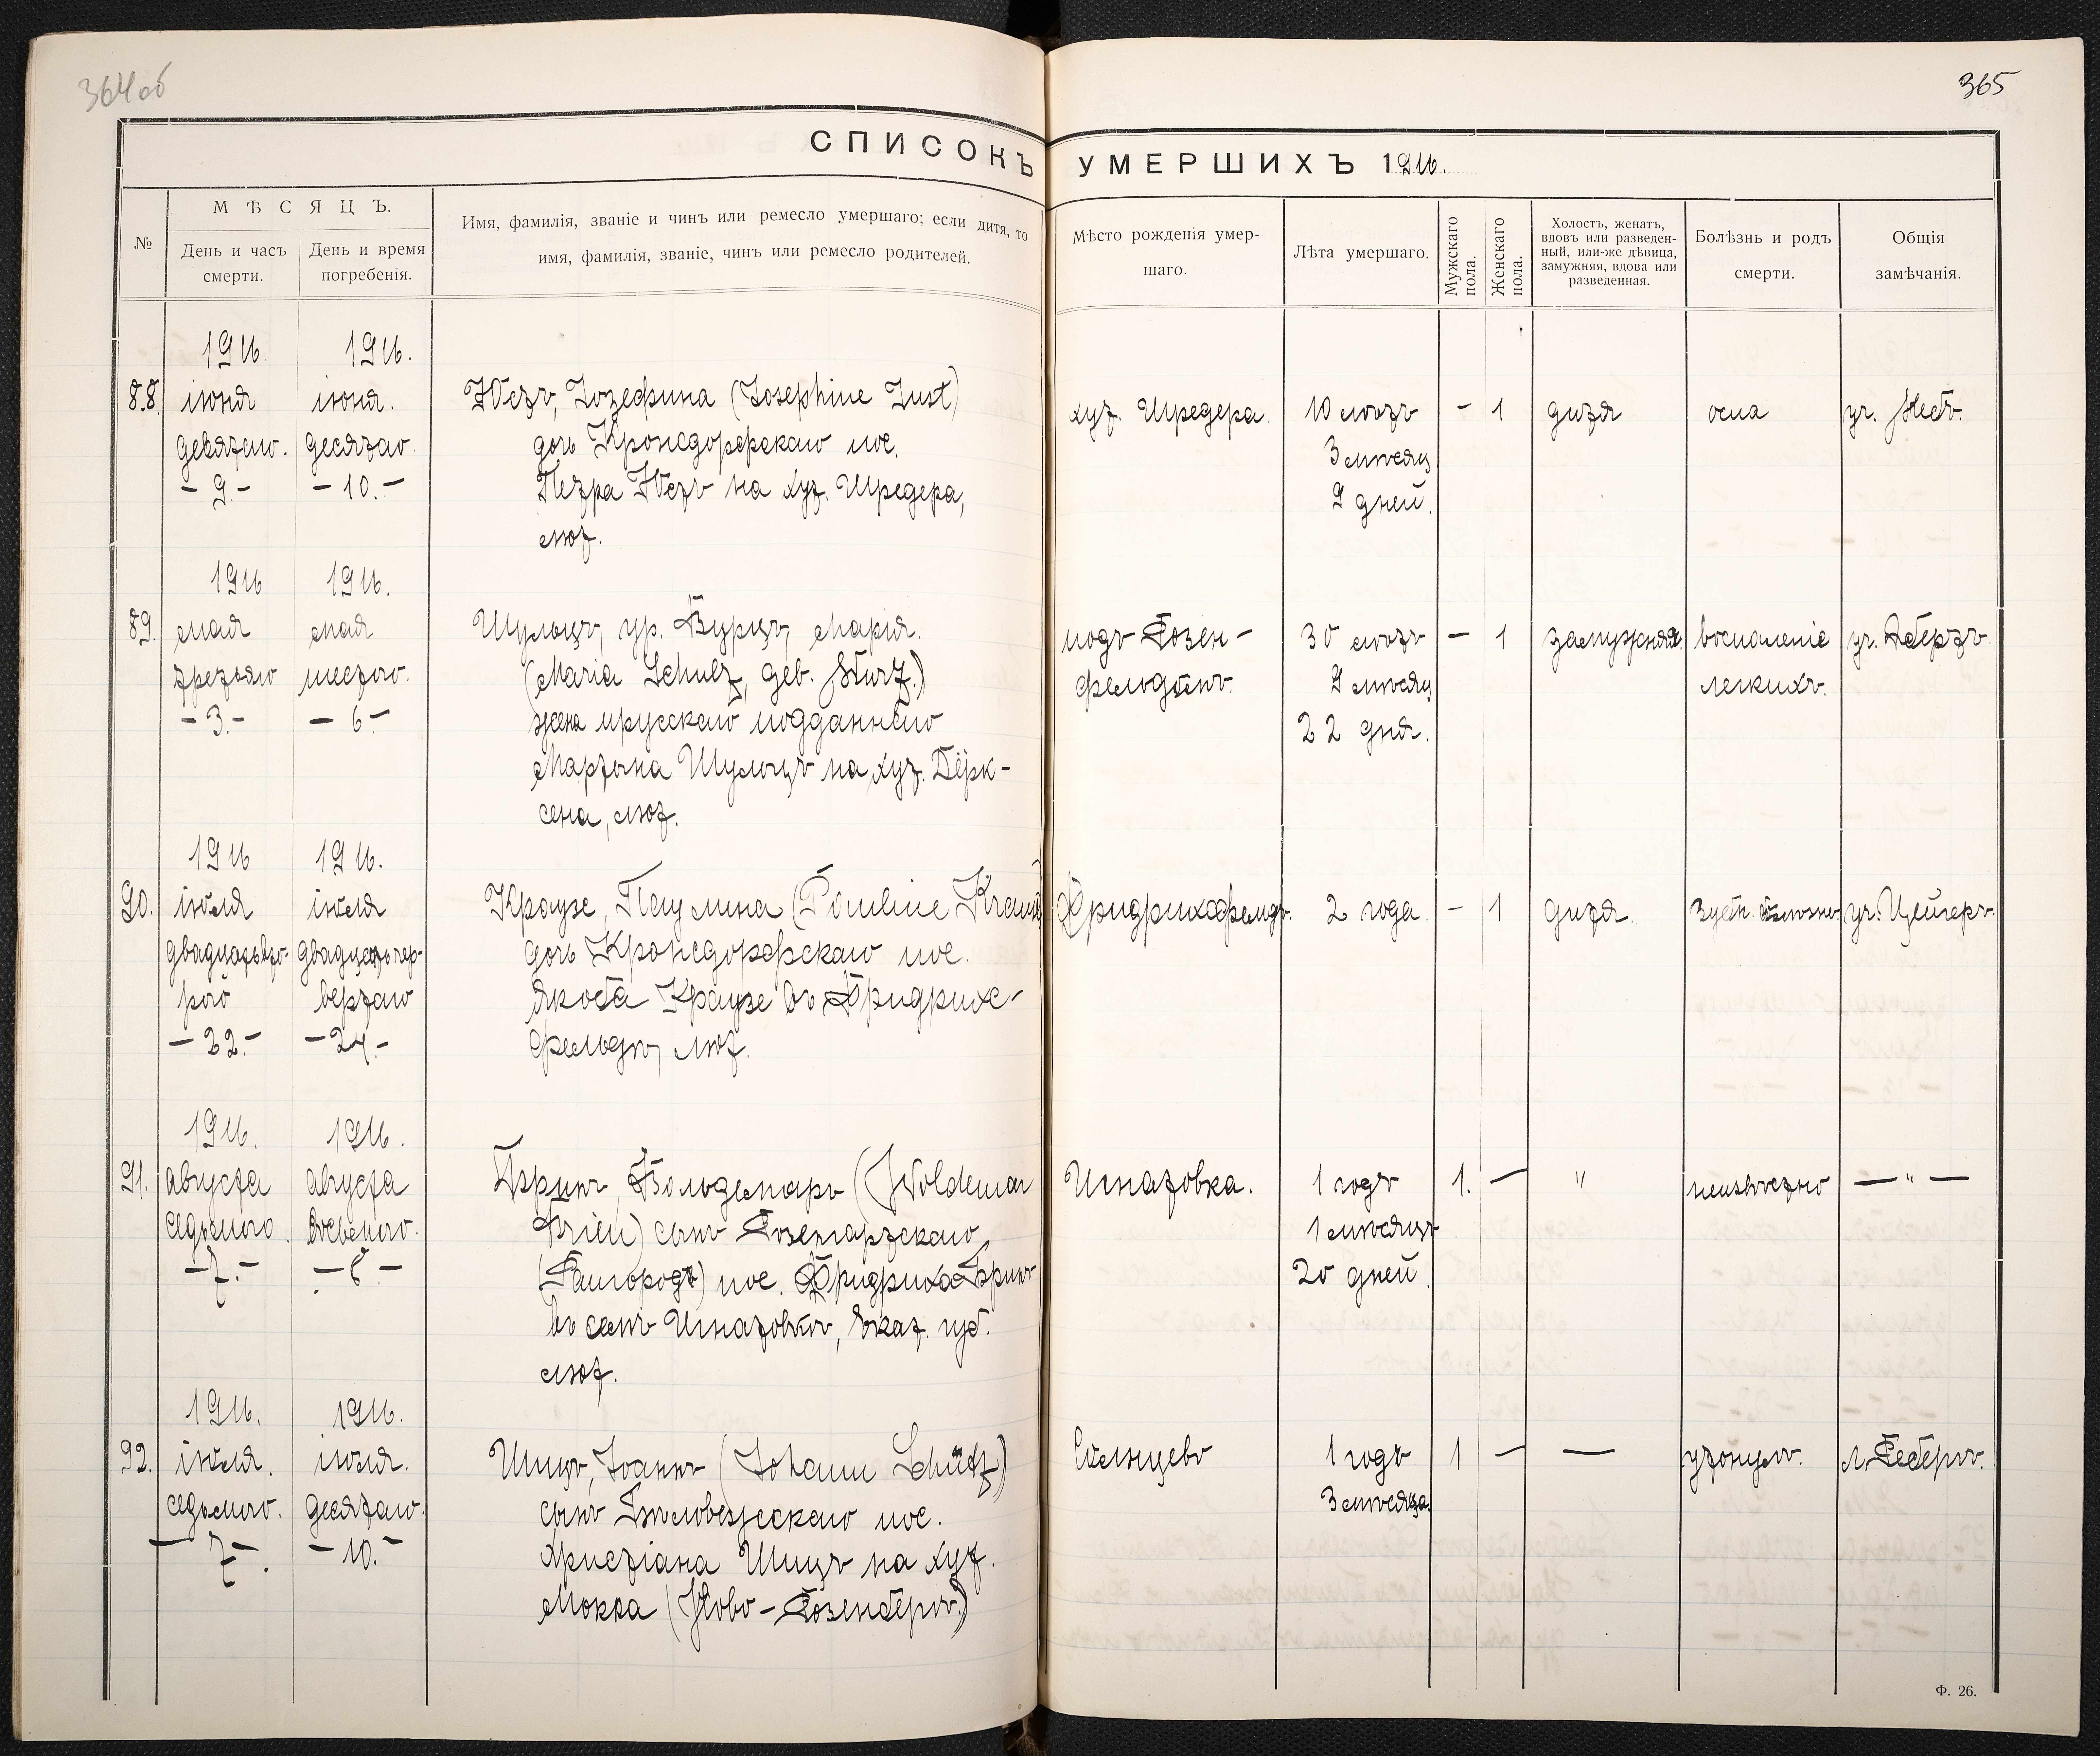 364об
365
СПИСОКЪ УМЕРШИХЪ 1916.
№
МѢСЯЦЪ.
День и часъ
смерти.
День и время
погребенія.
Имя, фамилія, званіе и чинъ или ремесло умершаго; если дитя, то
имя, фамилія, званіе, чинъ или ремесло родителей.
Мѣсто рожденія умер-
шаго.
Лѣта умершаго.
Мужскаго
пола.
Женскаго
пола.
Холостъ, женатъ,
вдовъ или разведен-
ный, или-же дѣвица,
замужняя, вдова или
разведенная.
Болѣзнь и родъ
смерти.
Общія
замѣчанія.
88.
1916.
іюня
девятаго.
- 9. -
1916.
іюня.
десятаго.
- 10. -
Юстъ, Іозефина (Josephine Just)
дочь Кронсдорфскаго пос.
Петра Юстъ на хут. Шредера,
лют.
хут. Шредера.
10 лѣтъ
3 мѣсяц.
9 дней.
-
1
дитя
оспа
уч. Нейъ.
89.
1916
мая
третьяго
- 3. -
1916.
мая
шестого.
- 6 -
Шульцъ, ур. Вурцъ, Марія.
(Maria Schulz, geb. Wurz.)
жена прусскаго подданнаго
Мартына Шульцъ на хут. Дёрк-
сена, лют.
подъ Розен-
фельдомъ.
30 лѣтъ
9 мѣсяц
22 дня.
-
1
замужняя.
воспаленіе
легкихъ.
уч. Эбертъ.
90.
1916
іюля
двадцатьвто-
рого
- 22. -
1916.
іюля
двадцатьчет-
вертаго
- 24. -
Краузе, Паулина (Pauline Krause)
дочь Кронсдорфскаго пос.
Якоба Краузе въ Фридрихс-
фельдѣ, лют.
Фридрихсфельдъ.
2 года.
-
1
дитя.
уч. Цейгеръ.
91.
1916.
августа
седьмого.
- 7. -
1916.
августа
восьмого.
- 8 -
Гринъ, Вольдемаръ (Woldemar
Grien) сынъ Розенгартскаго
(Райгородъ) пос. Фридриха Гринъ
въ селѣ Игнатовкѣ, Екат. губ.
лют.
Игнатовка.
1 годъ
1 мѣсяцъ
20 дней.
1.
-
"
неизвѣстно
- " -
92.
1916.
іюля.
седьмого.
- 7 -.
1916.
іюля.
десятаго.
- 10. -
Шицъ, Іоаннъ (Johann Schütz)
сынъ Бѣловежскаго пос.
Христіана Шицъ на хут.
Мокка (Ново-Розенбергъ.)
Сѣльцево
1 годъ
3 мѣсяца.
1
-
-
утонулъ.
Л. Реберъ.
Ф. 26.